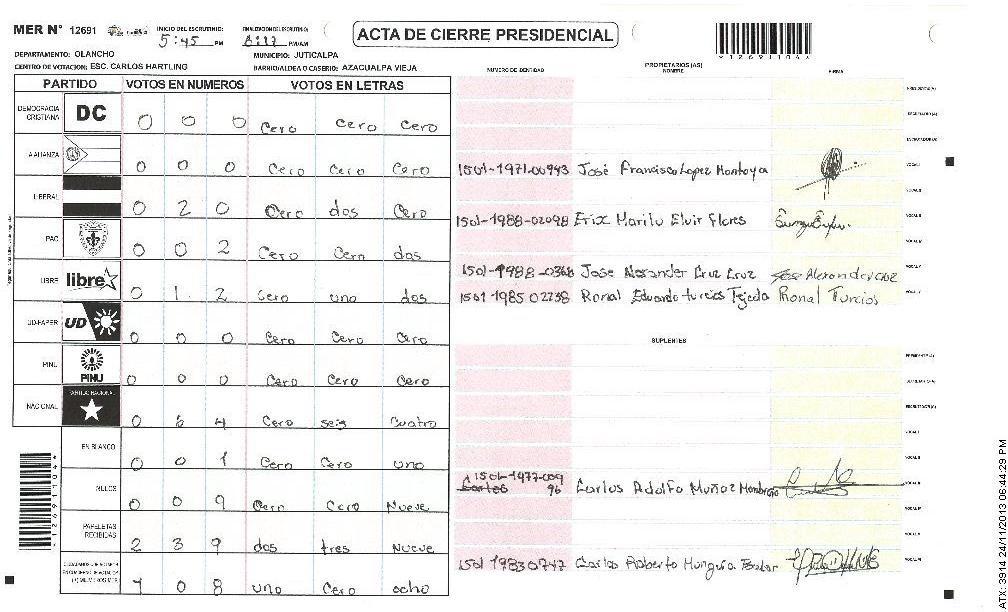 MER N° 12691
INICIO DEL ESCRUTINIO: 5:45 PM
FINALIZACION DEL ESCRUTINIO: 8:17 PM/AM
ACTA DE CIERRE PRESIDENCIAL
*12691104*
DEPARTAMENTO: OLANCHO
MUNICIPIO: JUTICALPA
CENTRO DE VOTACION: ESC. CARLOS HARTLING
BARRIO/ALDEA O CASERIO: AZACUALPA VIEJA
PARTIDO VOTOS EN NUMEROS VOTOS EN LETRAS
DEMOCRACIA CRISTIANA DC 0 0 0 Cero Cero Cero
ALIANZA 0 0 0 Cero Cero Cero
LIBERAL 0 2 0 Cero dos Cero
PAC 0 0 2 Cero Cero dos
LIBRE libre 0 1 2 Cero uno dos
UD-FAPER UD 0 0 0 Cero Cero Cero
PINU PINU 0 0 0 Cero Cero Cero
NACIONAL PARTIDO NACIONAL 0 6 4 Cero seis Cuatro
EN BLANCO 0 0 1 Cero Cero uno
NULOS 0 0 9 Cero Cero Nueve
PAPELETAS RECIBIDAS 2 3 9 dos tres Nueve
1 0 8 uno Cero ocho
*12691104*
NUMERO DE IDENTIDAD
PROPIETARIOS (AS)
NOMBRE
FIRMA
PRESIDENTE (A)
SECRETARIO (A)
ESCRUTADOR (A)
VOCAL I
1501-1971-00943 José Francisco Lopez Montoya
VOCAL II
1501-1988-02098 Erix Marilu Elvir Flores
1501-1988-0368 Jose Alexander Cruz Cruz Jose Alexander Cruz
1501 1985 02238 Ronal Eduardo turcios Tejeda Ronal Turcios
SUPLENTES
PRESIDENTE (A)
SECRETARIO (A)
ESCRUTADOR (A)
VOCAL I
VOCAL II
1501-1977-009
96 Carlos Adolfo Muñoz
1501 1983 0747 Carlos Roberto Munguia
ATX: 3914 24/11/2013 06:44:29 PM